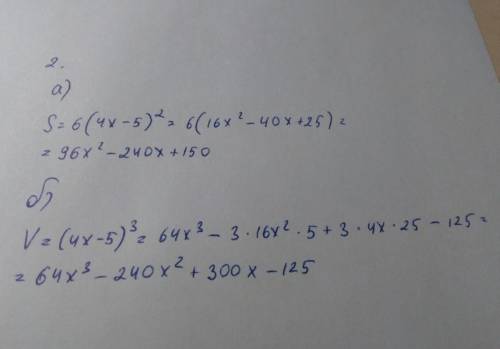 2.
а)
S = 6(4x-5)² = 6(16x² - 40x + 25) =
= 96x² - 240x + 150
б)
V = (4x-5)³ = 64x³ - 3·16x²·5 + 3·4x·25 - 125 =
= 64x³ - 240x² + 300x - 125